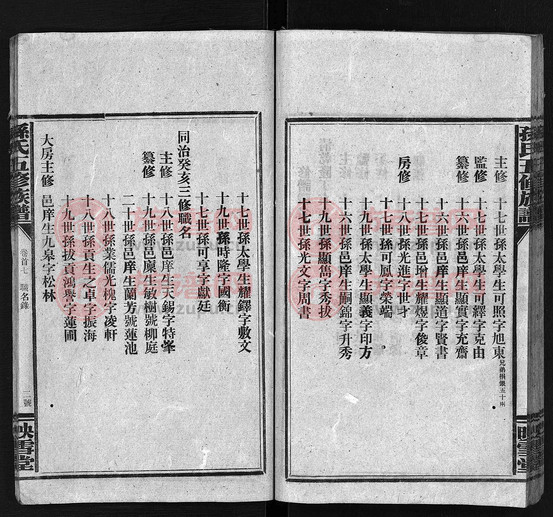 孫氏五修族譜
主修 十七世孫太學生可照字旭東兄弟捐錢五十兩
監修 十七世孫太學生可繹字克由
纂修 十六世孫邑庠生顯實字充齋
十六世孫邑庠生顯道字賢書
十七世孫邑增生耀焜字俊章
房修 十八世孫光進字世才
十七世孫可鳳字榮端
十六世孫太學生顯義字印方
十六世孫邑庠生嗣錦字升秀
十九世孫顯儁字秀拔
十七世孫光文字周書
映雪堂
十七世孫太學生耀鐸字敷文
十九世孫時隆字國衡
十七世孫可享字獻廷
同治癸亥三修職名
主修 十八世孫邑庠生天錫字特峯
纂修 十九世孫邑廩生敏樹號柳庭
二十世孫邑庠生蘭芳號蓮池
十八世孫業儒光槐字凌軒
十八世孫貢生之卓字振海
十九世孫拔貢鴻譽字蓮圃
大房主修 邑庠生九皋字松林
孫氏五修族譜
卷首七 職名錄
二號
映雪堂